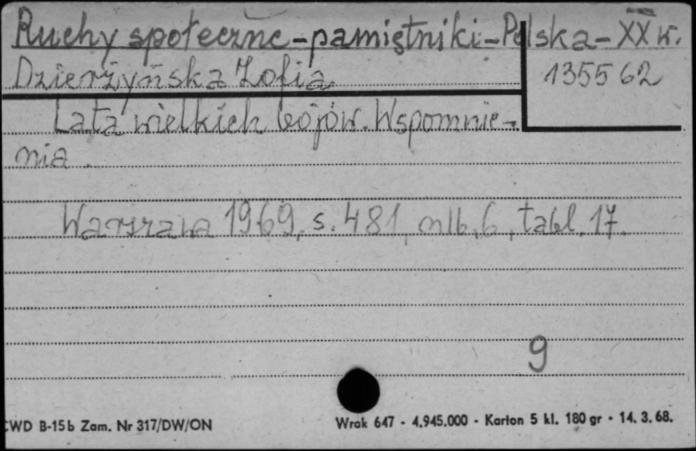 Ruchy społeczne - pamiętniki - Polska - XX w.
Dzierżyńska Zofia
135562
Lata wielkich bojów. Wspomnie-
nia.
Warszawa 1969, s. 481, nlb. 6, tabl. 17.
9
CWD B-15b Zam. Nr 317/DW/ON
Wrak 647 - 4.945.000 - Karton 5 kl. 180 gr - 14. 3. 68.